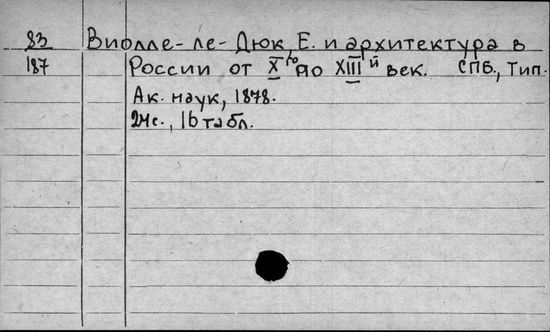 83 Виолле-ле-Дюк, Е. и архитектура в
187 России от X го по XIII й век. СПБ., Тип.
Ак. наук, 1878.
24с., 16 табл.